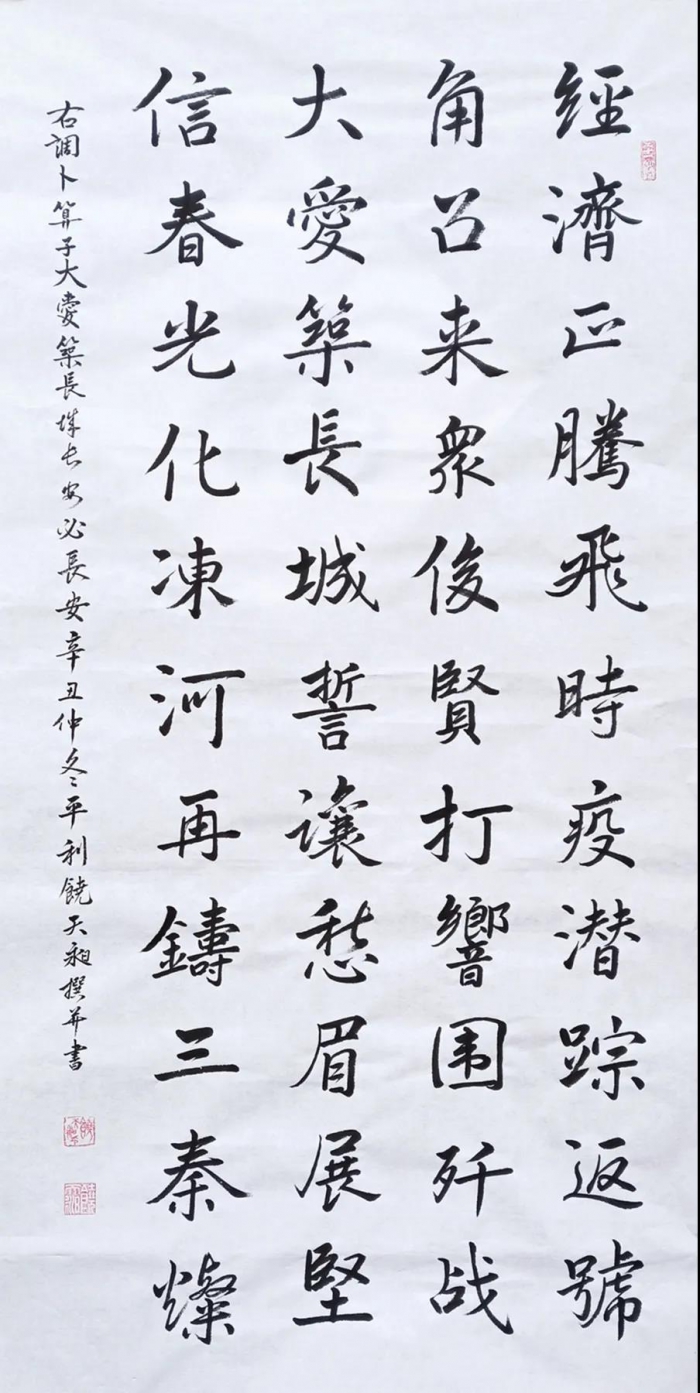 經濟正騰飛時疫潜踪返號
角召来衆俊賢打響围歼战
大愛築長城誓讓愁眉展堅
信春光化凍河再鑄三秦燦
右調卜算子大愛築長城长安必長安辛丑仲冬平利饒天昶撰并書